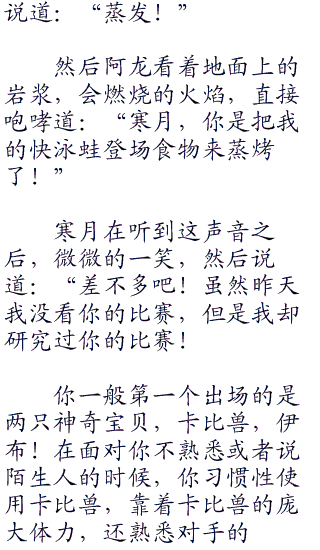 说道：“蒸发！”
然后阿龙看着地面上的
岩浆，会燃烧的火焰，直接
咆哮道：“寒月，你是把我
的快泳蛙登场食物来蒸烤
了！”
寒月在听到这声音之
后，微微的一笑，然后说
道：“差不多吧！虽然昨天
我没看你的比赛，但是我却
研究过你的比赛！
你一般第一个出场的是
两只神奇宝贝，卡比兽，伊
布！在面对你不熟悉或者说
陌生人的时候，你习惯性使
用卡比兽，靠着卡比兽的庞
大体力，还熟悉对手的